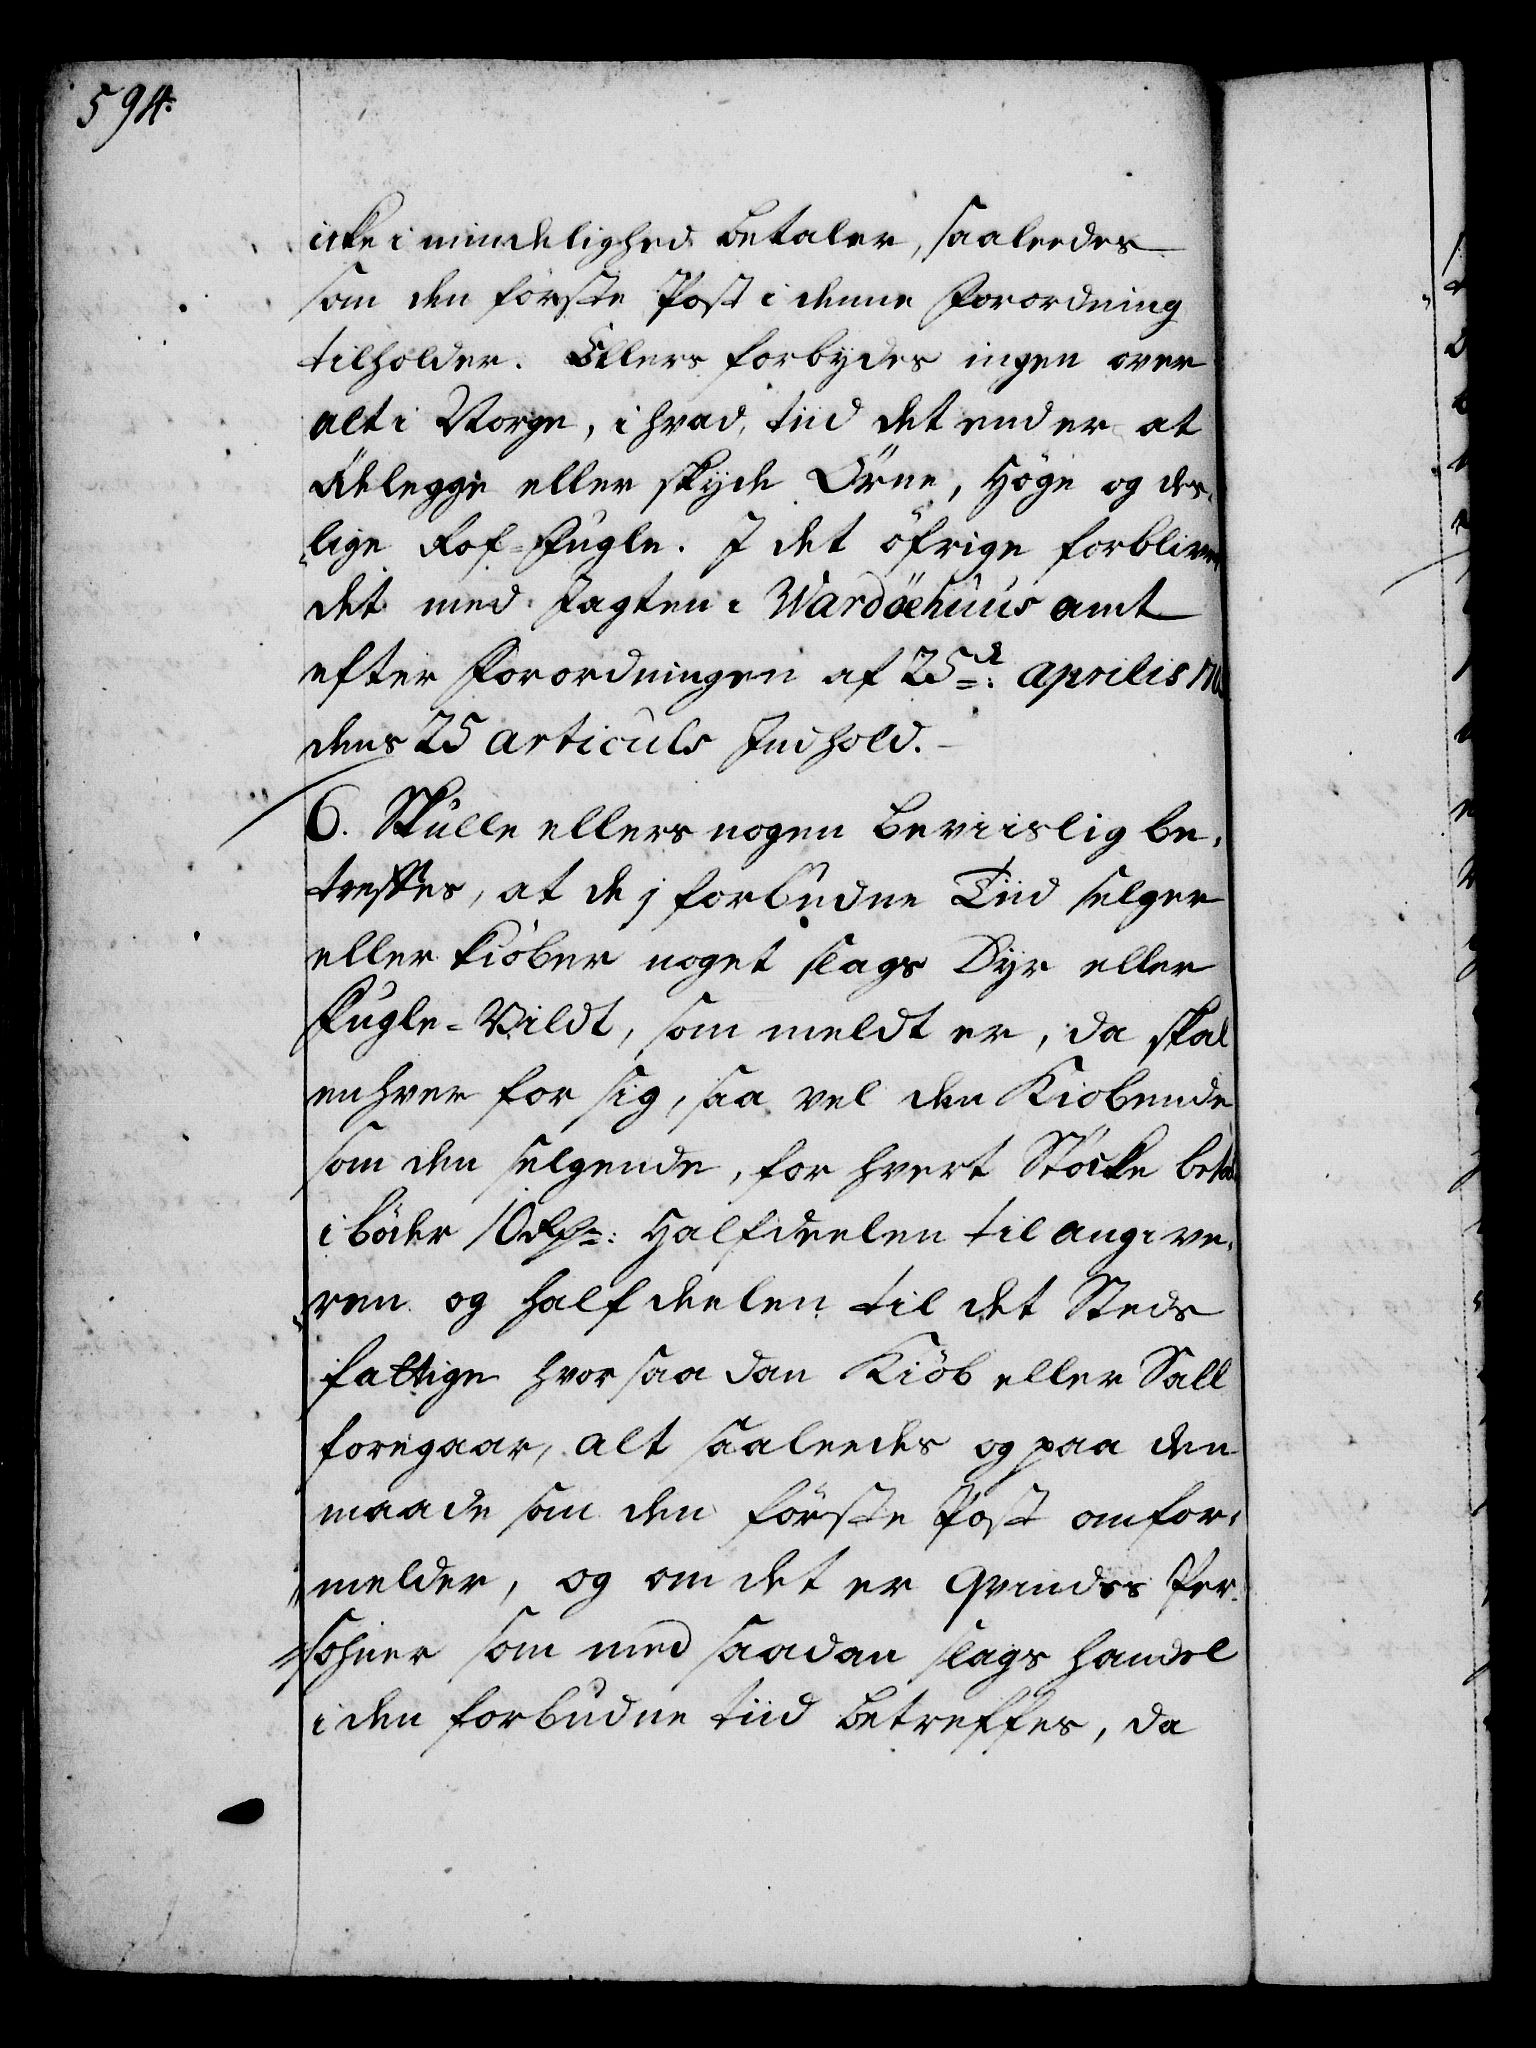 594.
icke i mindelighed betaler, saaleedes
som den förste Post i denne Forordning
tilholder. Ellers forbydes ingen over
alt i Norge, i hvad tiid det end er at
ödelegge eller skyde Örne, Höge og des-
lige Rof-Fugle. I det öfrige forbliver
det med Jagten i Wardöehuus amt
efter Forordningen af 25de aprilis
dens 25 articuls Indhold.
6. Skulle ellers nogen beviislig be-
treffes, at de j forbudne Tiid selger
eller kiöber noget slags Dyr eller
Fugle-Vildt, som meldt er, da skal
enhver for sig, saa vel den Kiöbende
som den selgende, for hvert Stöcke
i böder 10 Rdr: Halfdeelen til angive-
ren og halfdeelen til det Steds
fattige hvor saadan Kiöb eller Sall
foregaar, alt saaleedes og paa den
maade som den förste Post omfor-
melder, og om det er qvindes Per-
sohner som med saadan slags handel
i den forbudne tiid betreffes, da